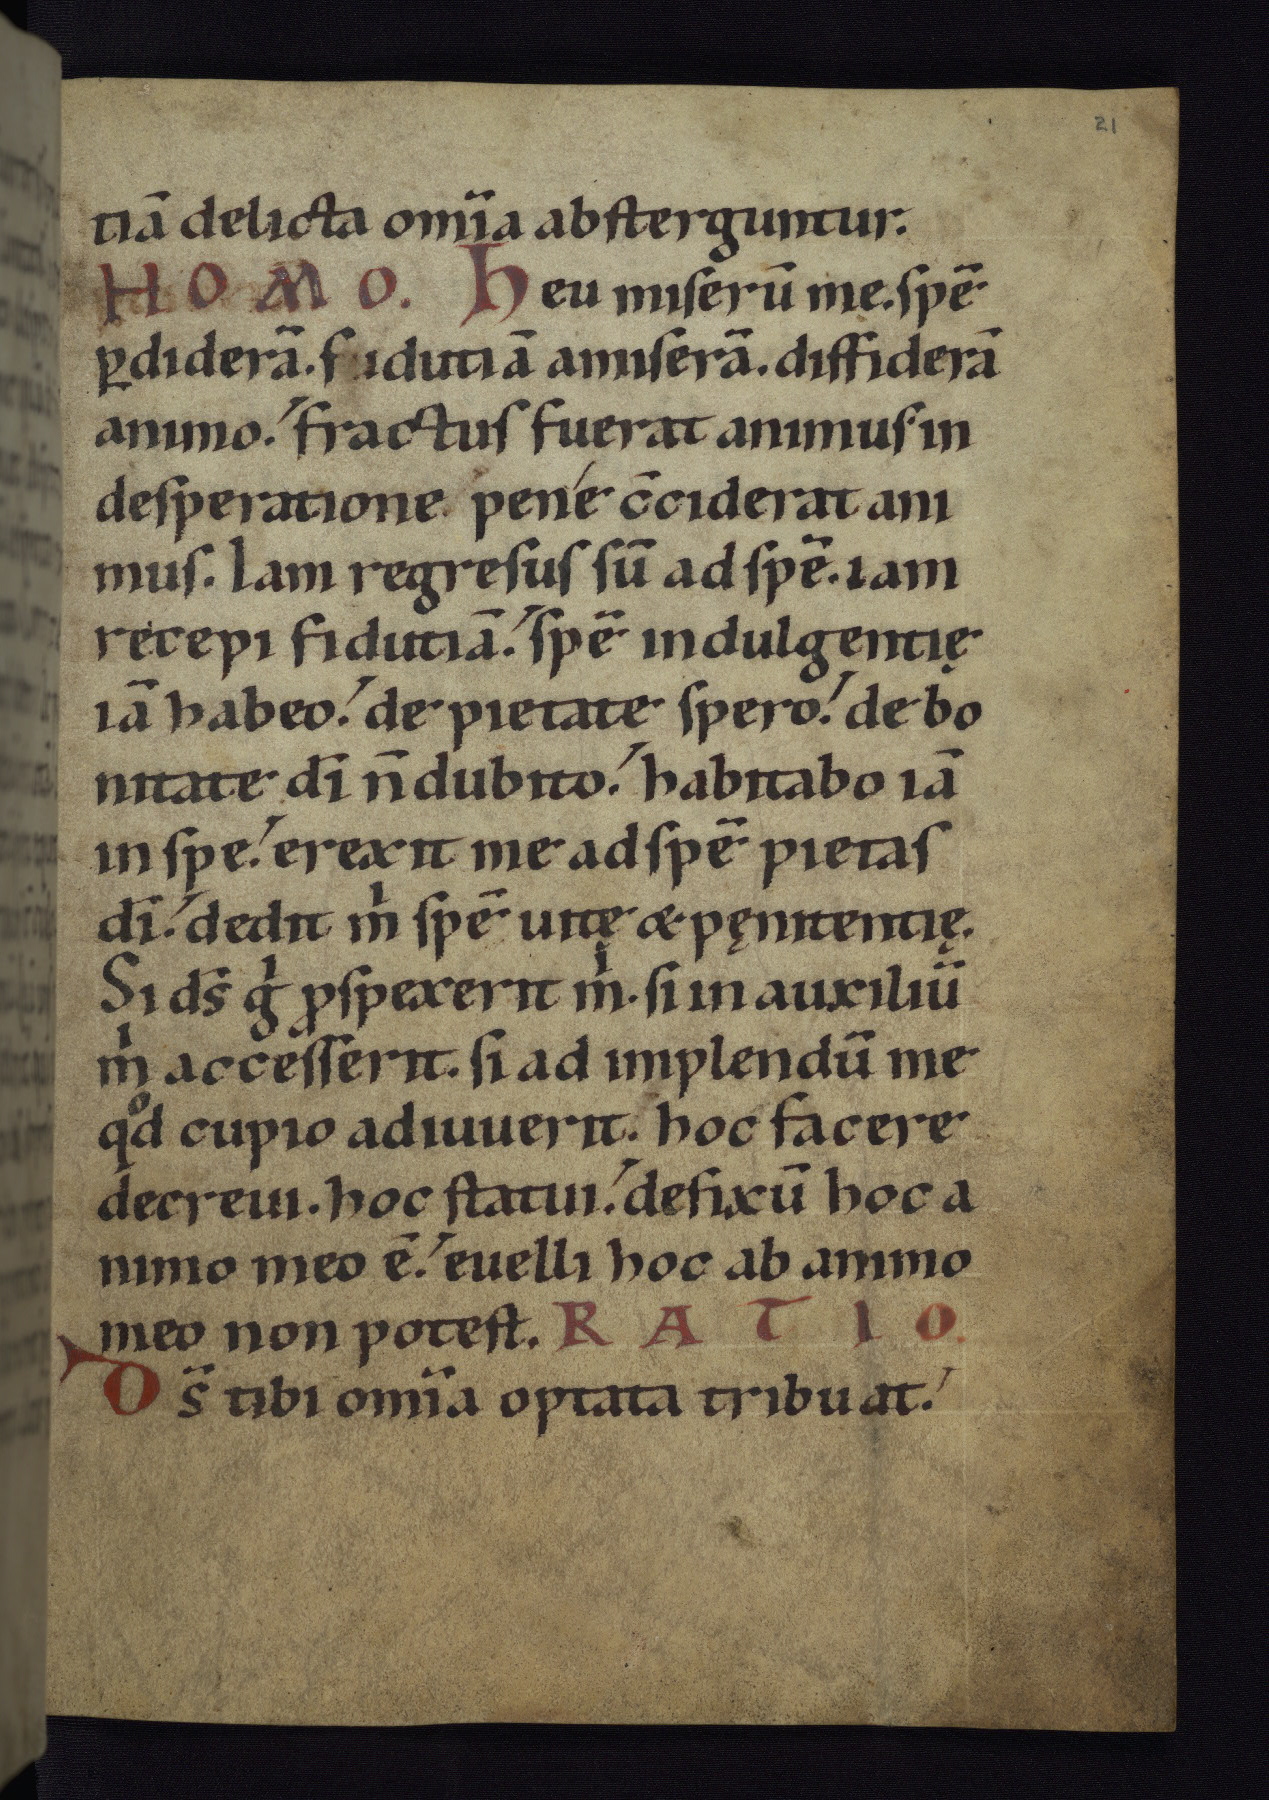 21
tiā delicta om̄ia absterguntur.
HOMO. Heu miserū me. spē
ꝑdiderā. fidutiā amiserā. diffiderā
animo. fractus fuerat animus in
desperatione pene c̄ciderat ani
mus. Iam regresus sū ad spē. iam
recepi fidutiā. spē indulgentię
iā habeo. de pietate spero. de bo
nitate dī n̄ dubito. habitabo iā
in spe. erexit me ad spē pietas
dī. dedit mͥ spē uitę & pęnitentię.
Si ds̄ gͥ ꝓspexerit mͥ. si in auxiliū
mͥ accesserit. si ad implendū me
qͦd cupio adiuuerit. hoc facere
decreui. hoc statui. defixū hoc a
nimo meo ē. euelli hoc ab animo
meo non potest. RATIO.
Ds̄ tibi om̄ia optata tribuat.